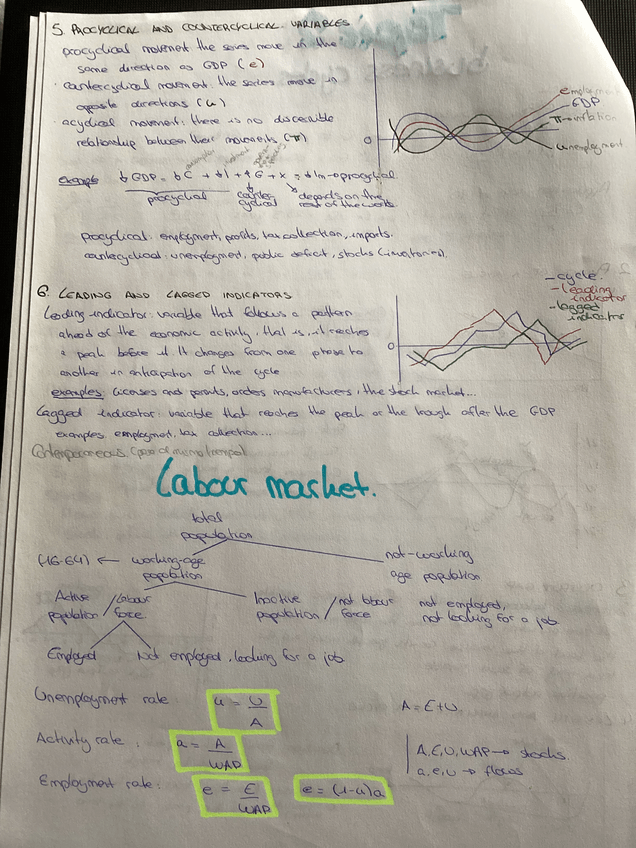 5. PROCYCLICAL AND COUNTERCYCLICAL VARIABLES
procyclical movement the series move in the
same direction as GDP (e)
· countercyclical movement: the series move in
opposite directions (u)
· acyclical movement: there is no discernible
relationship between their movements (π)
example
procyclical
counter
cyclical
depends on the
rest of the world
employment
GDP
π→inflation
unemployment
0
procyclical: employment, profits, tax collection, imports.
countercyclical: unemployment, public deficit, stocks (inventories).
6. LEADING AND LAGGED INDICATORS
Leading indicator: variable that follows a pattern
ahead of the economic activity, that is, it reaches
a peak before it. It changes from one phase to
another in anticipation of the cycle
- cycle
- leading
indicator
- lagged
indicator
0
examples: licenses and permits, orders manufacturers, the stock market...
Lagged indicator: variable that reaches the peak or the trough after the GDP
examples: employment, tax collection...
Labour market.
total
population
(16-64) ← working-age
population
not-working
age population
Active
population / labour
force
Inactive
population / not labour
force
not employed,
not looking for a job
Employed
Not employed, looking for a job
Unemployment rate
u = U/A
A = E+U
Activity rate:
a = A/WAP
A, E, U, WAP → stocks.
a, e, u → flows
Employment rate:
e = E/WAP
e = (1-u)a